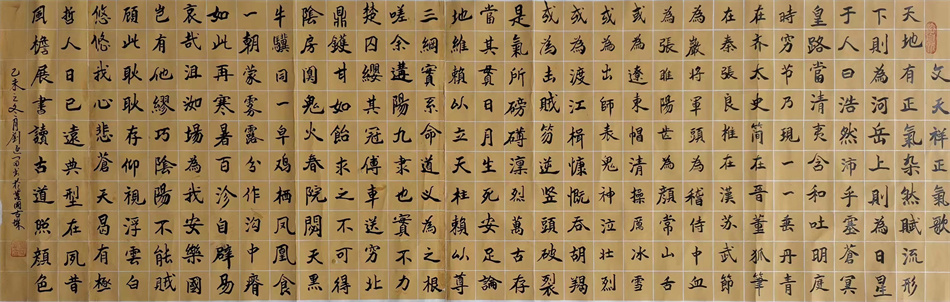 文天祥正氣歌
天地有正氣雜然賦流形
下則為河岳上則為日星
于人曰浩然沛乎塞蒼冥
皇路當清夷含和吐明庭
時穷节乃現一一垂丹青
在齐太史简在晉董狐筆
在秦張良椎在漢苏武節
為嚴將軍頭為稽侍中血
為張睢陽世為顏常山舌
或為遼東帽清操厲冰雪
或為出師表鬼神泣壯烈
或為渡江楫慷慨吞胡羯
或為击賊笏逆竖頭破裂
是氣所磅礴凛烈萬古存
當其貫日月生死安足論
地維賴以立天柱賴以尊
三綱實系命道义為之根
嗟余遘陽九隶也實不力
楚囚纓其冠傳車送穷北
鼎鑊甘如飴求之不可得
陰房闃鬼火春院閟天黑
牛驥同一皁鸡栖凤凰食
一朝蒙雾露分作沟中瘠
如此再寒暑百沴自辟易
哀哉沮洳場為我安樂國
豈有他繆巧陰陽不能賊
顧此耿耿存仰視浮雲白
悠悠我心悲蒼天曷有極
哲人日已遠典型在夙昔
風檐展書讀古道照顏色